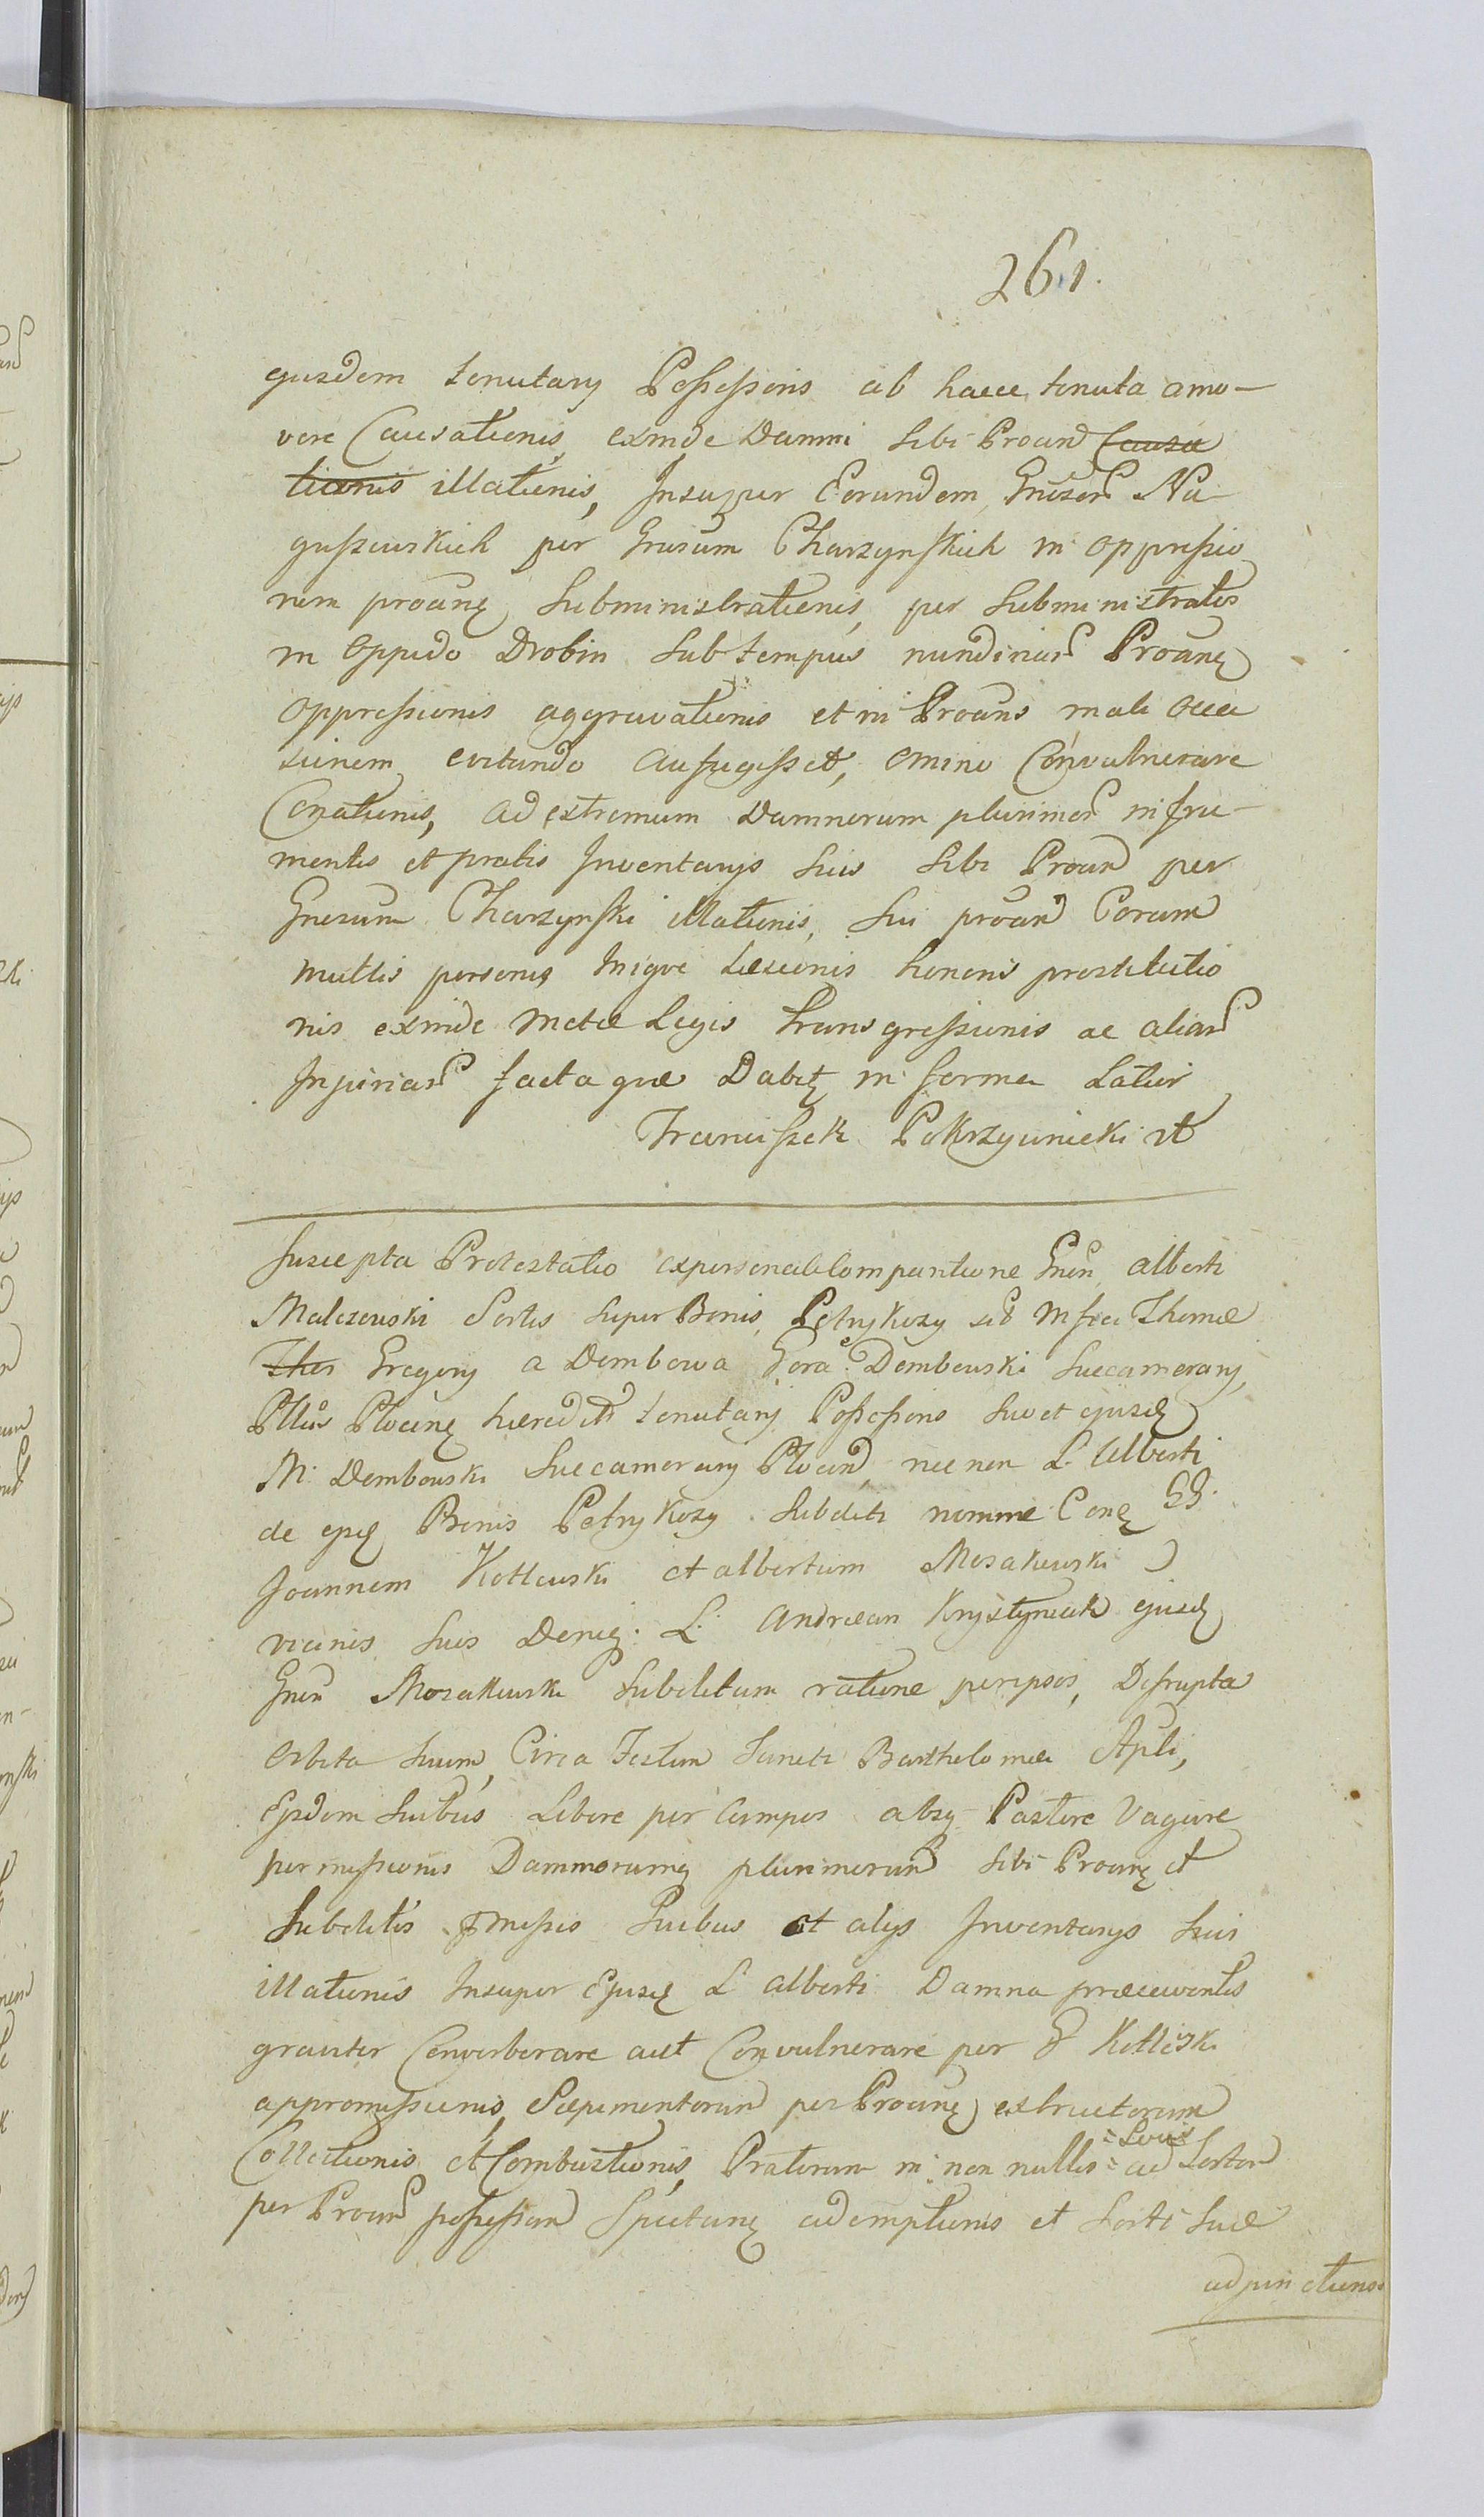 261.
ejusdem tenutarij Possessoris ab hacce tenuta amo-
vere Causationis, exinde Damni sibi Proand Causa
tionis illationis, Insuper Eorundem Gnesor Na-
guszewskich per Gnesum Charzynskich in oppressio
nem proanę subministrationis, per subministratos
in oppido Drobin sub tempus nundinar Proanę
oppressionis aggravationis et ni Proans mali occa
sionem evitando aufugisset, omino Convulnerare
Conationis, ad extremum Damnorum plurimor in fru-
mentis et pratis Inventarijs suis sibi Proan per
Gnesum Charzynski illationis, sui proan Coram
multis personis inique laesionis honoris prostitutio
nis exinde metae Legis transgressionis ac aliar
Injuriar facta quae Dabitę in forma Latior
Franciszek Pokrzywnicki
Suscepta Protestatio ex personali Comparitione Gnen Alberti
Malczewski Sortis super Bonis Petrykozy sed Mfici Thomae
Thos Gregorij a Dembowa Gora Dembowski Succamerarij
Plocenę haeredit tenutarij Possessoris suo et ejusdę
M. Dembowski Succamerarij Plocend nec non L. Alberti
de ejsdę Bonis Petrykozy subditi nomine Conę GG.
Joannem Kotlewski et Albertum Mosakowski
vicinis suis Deniq. L. Andream Krystyniak ejusdę
Gnen Mosakowski subditum ratione per ipsos, Disrupta
orbita suum, Circa Festum Sancti Bartholomaei Apli,
Ejsdem suibus Libere per Campos absq Pastore Vagare
permissionis Damnorumq plurimorum sibi Proanę et
subditis missis suibus et alijs Inventarijs suis
illationis Insuper Ejusdę L Alberti Damna praecaventis
graviter Converberare aut Convulnerare per G Kotlewski
appromissionis, Saepimentorum per Proanę extructorum
Collectionis et Combustionis, Pratorum in non nullis =Locis= ad Sortem
per Proan possessam Spectanę ademptionis et Sorti suae
adjunctionis